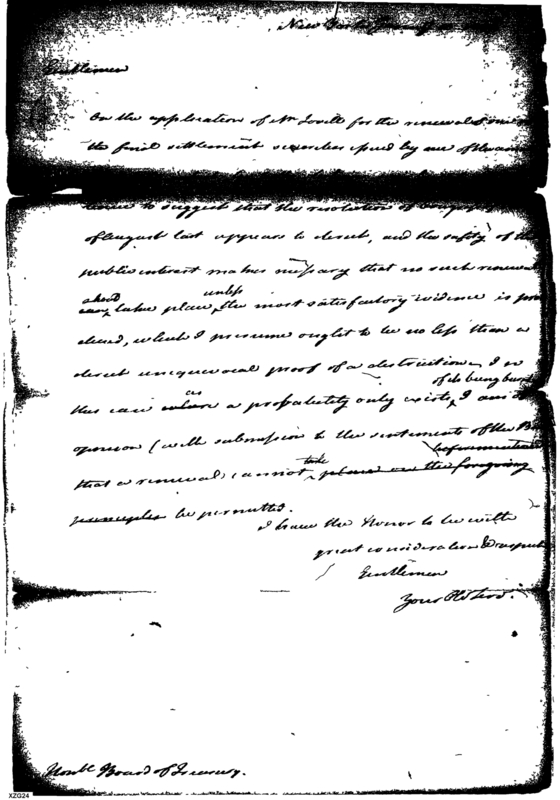 New York
Gentlemen
On the application of Mr Lovell for the renewal of
the final settlement issued by one of the
leave to suggest that the resolution of
of August last appears to direct, and the safety of the
public interest makes necessary that no such renewal
shoud unless
take place, the most satisfactory evidence is pro
duced, which I presume ought to be no less than a
direct unequivocal proof of a destruction In
of its being burnt
this case where as a probability only exists, I am of
opinion (with submission to the sentiments of the
beforementioned
that a renewal cannot take place on the foregoing
principles be permitted.
I have the Honor to be with
great consideration & respect
Gentlemen
Your Obt Serv.
Honble Board of Treasury.
XZG24